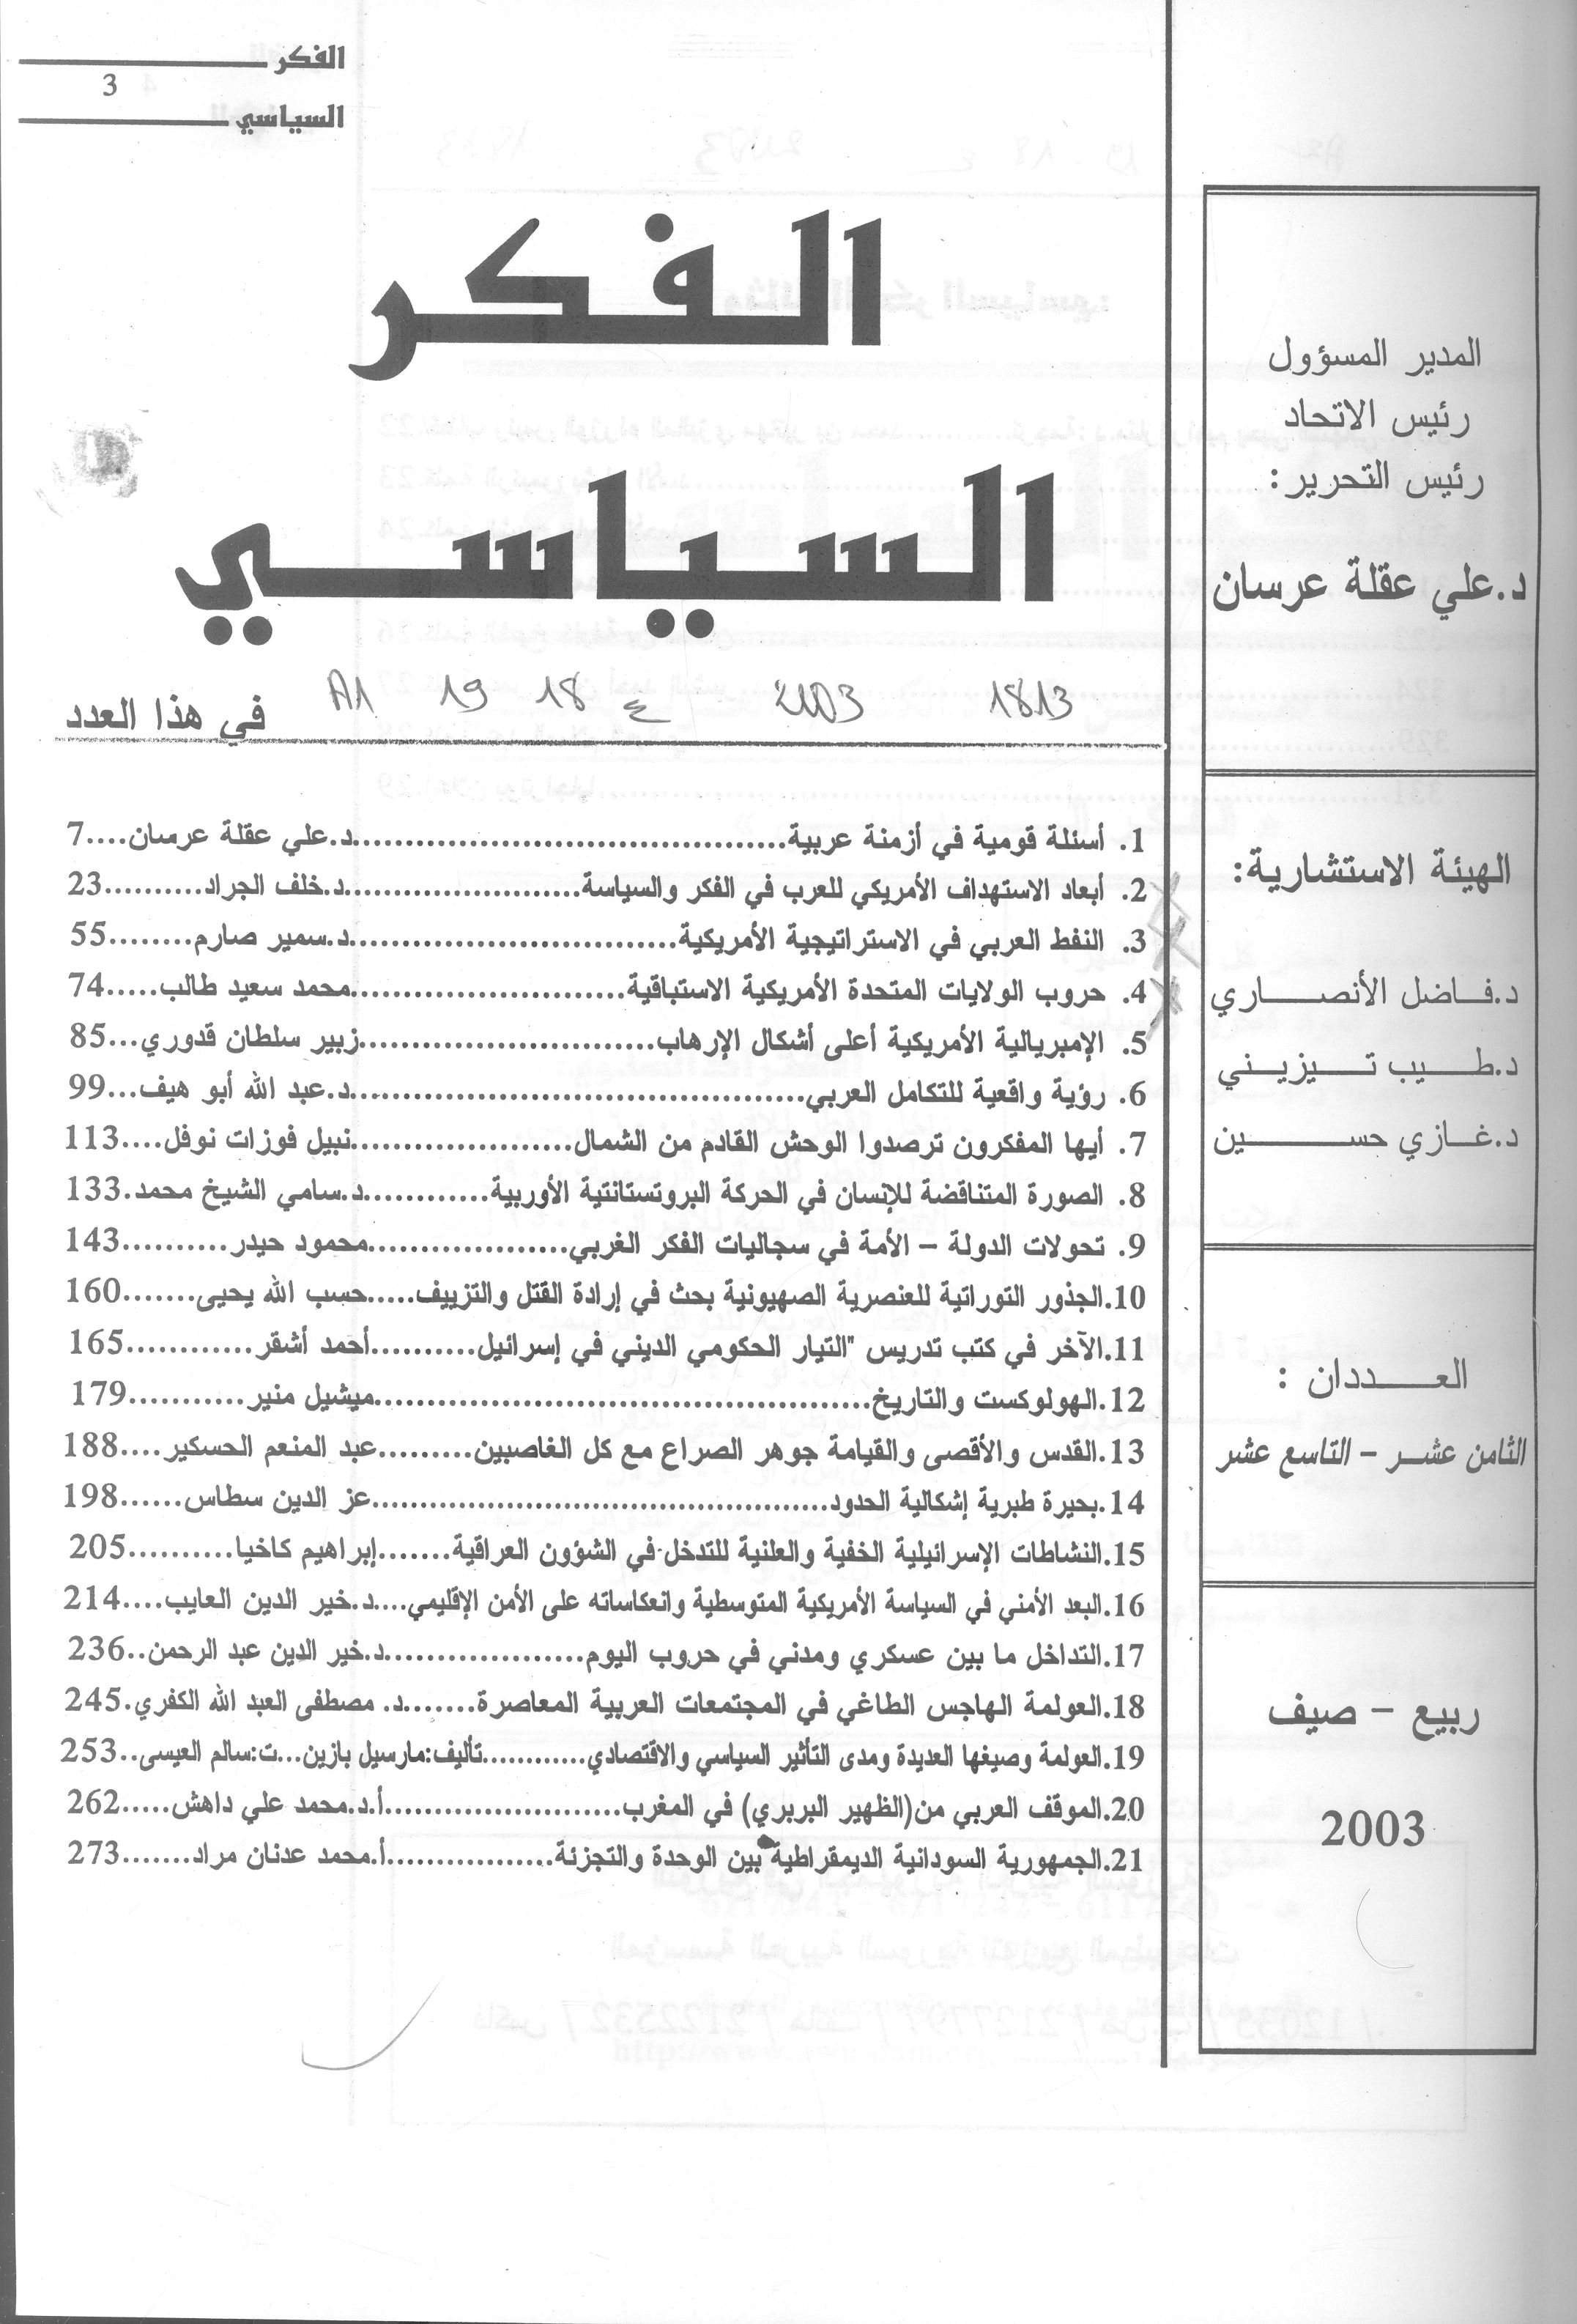 الفكر
3
السياسي
الفكر
السياسي
A1 19 18 ع 2003 1813
في هذا العدد
1. أسئلة قومية في أزمنة عربية........................................د.علي عقلة عرسان....7
2. أبعاد الاستهداف الأمريكي للعرب في الفكر والسياسة......................د.خلف الجراد..........23
3. النفط العربي في الاستراتيجية الأمريكية...............................د.سمير صارم........55
4. حروب الولايات المتحدة الأمريكية الاستباقية..........................محمد سعيد طالب.....74
5. الإمبريالية الأمريكية أعلى أشكال الإرهاب............................زبير سلطان قدوري...85
6. رؤية واقعية للتكامل العربي...........................................د.عبد الله أبو هيف...99
7. أيها المفكرون ترصدوا الوحش القادم من الشمال.....................نبيل فوزات نوفل....113
8. الصورة المتناقضة للإنسان في الحركة البروتستانتية الأوربية............د.سامي الشيخ محمد.133
9. تحولات الدولة – الأمة في سجاليات الفكر الغربي...................محمود حيدر..........143
10.الجذور التوراتية للعنصرية الصهيونية بحث في إرادة القتل والتزييف.....حسب الله يحيى.......160
11.الآخر في كتب تدريس "التيار الحكومي الديني في إسرائيل..........أحمد أشقر............165
12.الهولوكست والتاريخ...............................................ميشيل منير...........179
13.القدس والأقصى والقيامة جوهر الصراع مع كل الغاصبين.........عبد المنعم الحسكير....188
14.بحيرة طبرية إشكالية الحدود...........................................عز الدين سطاس......198
15.النشاطات الإسرائيلية الخفية والعلنية للتدخل في الشؤون العراقية.......إبراهيم كاخيا..........205
16.البعد الأمني في السياسة الأمريكية المتوسطية وانعكاساته على الأمن الإقليمي....د.خير الدين العايب....214
17.التداخل ما بين عسكري ومدني في حروب اليوم...................د.خير الدين عبد الرحمن..236
18.العولمة الهاجس الطاغي في المجتمعات العربية المعاصرة.......د. مصطفى العبد الله الكفري.245
19.العولمة وصيغها العديدة ومدى التأثير السياسي والاقتصادي............تأليف:مارسيل بازين...ت:سالم العيسى..253
20.الموقف العربي من(الظهير البربري) في المغرب......................أ.د.محمد علي داهش.....262
21.الجمهورية السودانية الديمقراطية بين الوحدة والتجزئة................أ.محمد عدنان مراد.......273
المدير المسؤول
رئيس الاتحاد
رئيس التحرير:
د.علي عقلة عرسان
الهيئة الاستشارية:
د.فـاضل الأنصـــاري
د.طـــيب تـــيزيــني
د.غـــازي حســـــين
العــــددان :
الثامن عشـر – التاسع عشر
ربيع – صيف
2003